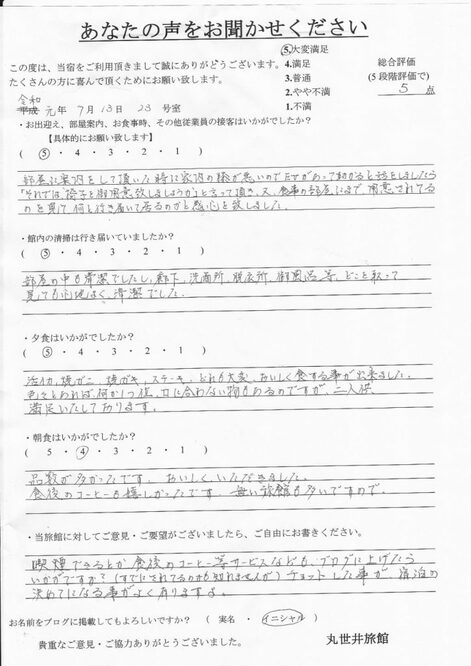 あなたの声をお聞かせください
この度は、当宿をご利用頂きまして誠にありがとうございます。
たくさんの方に喜んで頂くためにお願い致します。
5.大変満足
4.満足
3.普通
2.やや不満
1.不満
総合評価
(5段階評価で)
5 点
令和
平成 元年 7月 13日 23号室
・お出迎え、部屋案内、お食事時、その他従業員の接客はいかがでしたか?
【具体的にお願い致します】
( 5 ・ 4 ・ 3 ・ 2 ・ 1 )
部屋に案内をして頂いた時に家内の膝が悪いので
「それでは、椅子を御用意致しましょうか」と言って頂き、又、食事の部屋にまで、用意されてる
のを見て何と行き届いて居るのかと感心を致しました。
・館内の清掃は行き届いていましたか?
( 5 ・ 4 ・ 3 ・ 2 ・ 1 )
部屋の中も清潔でしたし、廊下、洗面所、脱衣所、御風呂等、どこを取って
見ても心地よく、清潔でした。
・夕食はいかがでしたか?
( 5 ・ 4 ・ 3 ・ 2 ・ 1 )
活イカ、焼ガニ、焼ガキ、ステーキ、どれも大変、おいしく食する事が出来ました。
色々とあれば、何か1つ位、口に合わない物もあるのですが、二人共
満足いたして居ります。
・朝食はいかがでしたか?
( 5 ・ 4 ・ 3 ・ 2 ・ 1 )
品数が多かったです。おいしく、いただきました。
食後のコーヒーも嬉しかったです。無い旅館も多いですので。
・当旅館に対してご意見・ご要望がございましたら、ご自由にお書きください。
喫煙できるとか食後のコーヒー等サービスなども、ブログに上げたら
いかがですか?(すでにされてるのかも知れませんが)チョットした事が、宿泊の
決めてになる事がよく有りますよ。
お名前をブログに掲載してもよろしいですか? ( 実名 ・ イニシャル )
貴重なご意見・ご協力ありがとうございました。
丸世井旅館